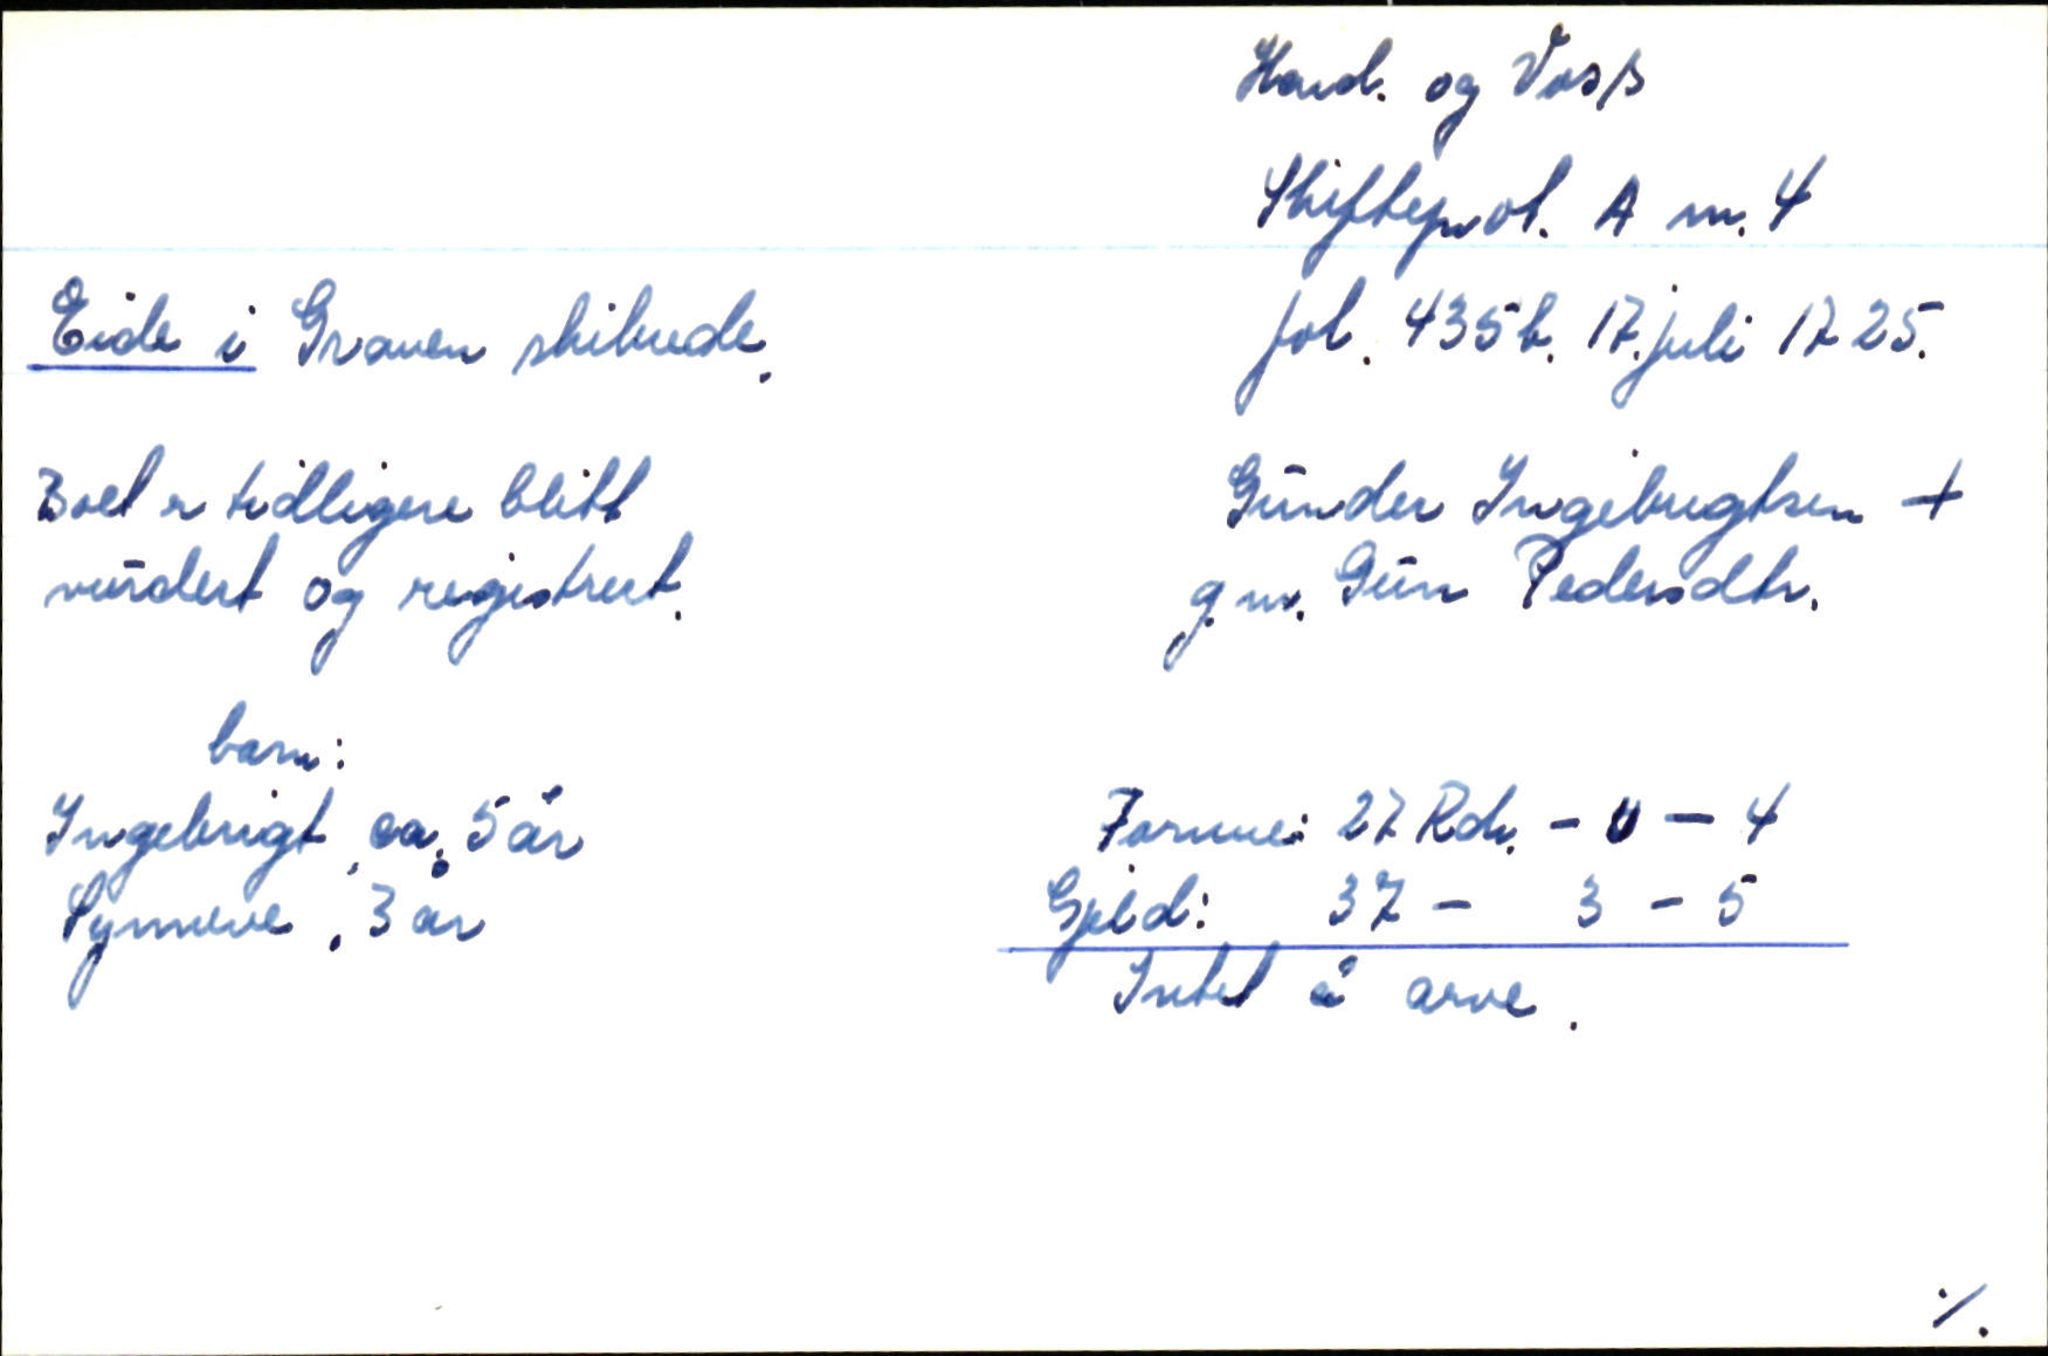 Hard. og Voss
Skifteprot. A nr. 4
Eide i Graven skibrede.
fol. 435b. 17. juli 1725.
Boet er tidligere blitt
vurdert og registrert.
Gunder Ingebrigtsen +
g.m. Guri Pedersdtr.
barn:
Ingebrigt, ca. 5 år
Synneve, 3 år
Formue: 27 Rdr. - 0 - 4
Gjeld: 37 - 3 - 5
Intet å arve.
·/.